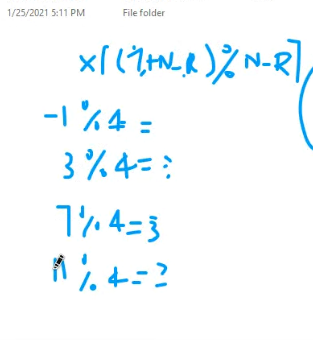 1/25/2021 5:11 PM File folder
x[(i+N-R)%N-R]
-1 % 4 =
3 % 4 = 3
7 % 4 = 3
11 % 4 = 3